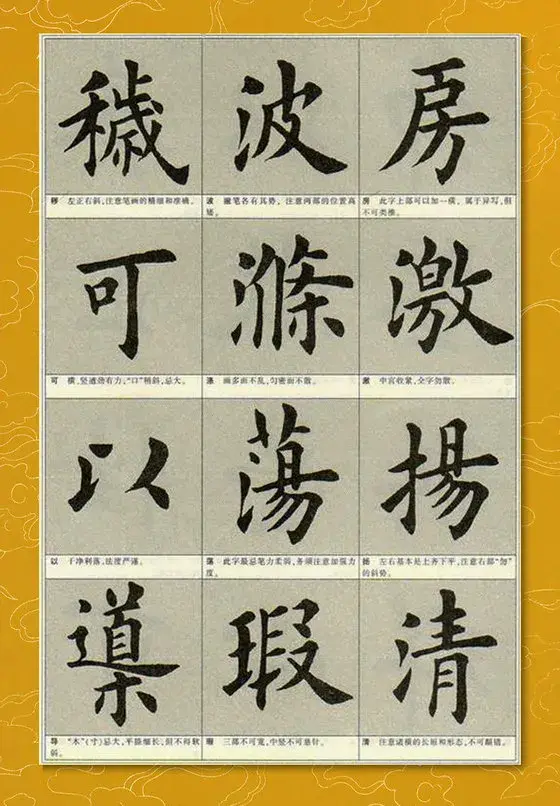 房
房 此字上部可以加一横，属于异写，但
不可类推。
激
激 中宫收紧，全字勿散。
揚
扬 左右基本是上齐下平，注意右部“勿”
的斜势。
清
清 注意诸横的长短和形态，不可颠错。
波
波 撇笔各有其势，注意两部的位置高
矮。
滌
涤 画多而不乱，匀密而不散。
蕩
荡 此字最忌笔力柔弱，务须注意加强力
度。
瑕
瑕 三部不可宽，中竖不可悬针。
穢
秽 左正右斜，注意笔画的精细和准确。
可
可 横、竖遒劲有力，“口”稍斜，忌大。
以
以 干净利落，法度严谨。
導
导 “木”（寸）忌大，平捺细长，但不得软
弱。